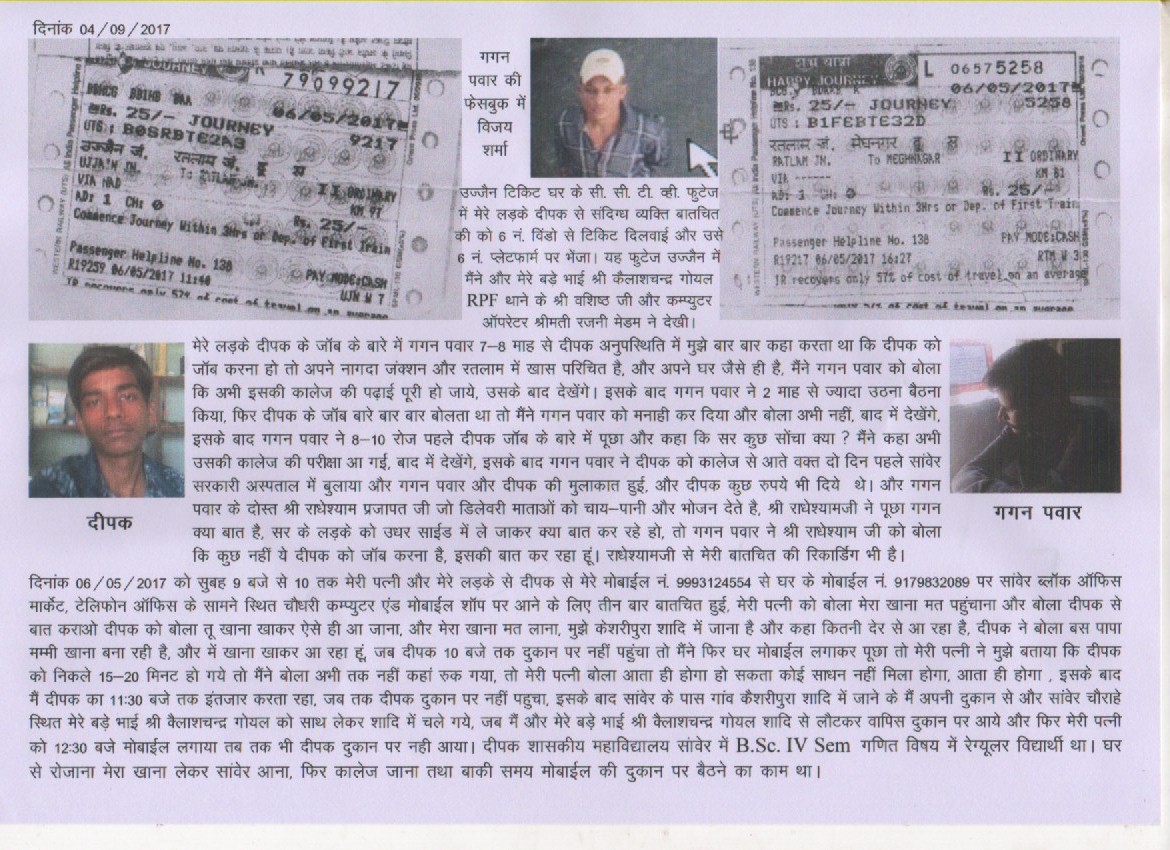 दिनांक 04/09/2017
JOURNEY
79099217
06/05/2017
Rs. 25/- JOURNEY
9217
UTS : B0SRBTE2A3
उज्जैन जं. रतलाम जं.
UJJAIN JN. To RATLAM JN.
II ORDINARY
VIA NAD
KM 97
AD: 1 CH: 0
Rs. 25/-
Commence Journey Within 3Hrs or Dep. of First Train
Passenger Helpline No. 138
PAY MODE:CASH
R19259 06/05/2017 11:40
UJN W 7
IR recovers only 57% of cost of travel on an average
गगन
पवार की
फेसबुक में
विजय
शर्मा
शुभ यात्रा
HAPPY JOURNEY
L 06575258
06/05/2017
Rs. 25/- JOURNEY
5258
UTS : B1FEBTE32D
रतलाम जं. मेघनगर
RATLAM JN. To MEGHNAGAR
II ORDINARY
VIA ------
KM 81
AD: 1 CH: 0
Rs. 25/-
Commence Journey Within 3Hrs or Dep. of First Train
Passenger Helpline No. 138
PAY MODE:CASH
R19217 06/05/2017 16:27
RTM W 3
IR recovers only 57% of cost of travel on an average
उज्जैन टिकिट घर के सी. सी. टी. व्ही. फुटेज
में मेरे लड़के दीपक से संदिग्ध व्यक्ति बातचित
की को 6 नं. विंडो से टिकिट दिलवाई और उसे
6 नं. प्लेटफार्म पर भेंजा। यह फुटेज उज्जैन में
मैंने और मेरे बड़े भाई श्री कैलाशचन्द्र गोयल
RPF थाने के श्री वशिष्ठ जी और कम्प्युटर
ऑपरेटर श्रीमती रजनी मेडम ने देखी।
मेरे लड़के दीपक के जॉब के बारे में गगन पवार 7–8 माह से दीपक अनुपरिथति में मुझे बार बार कहा करता था कि दीपक को
जॉब करना हो तो अपने नागदा जंक्शन और रतलाम में खास परिचित है, और अपने घर जैसे ही है, मैंने गगन पवार को बोला
कि अभी इसकी कालेज की पढ़ाई पूरी हो जाये, उसके बाद देखेंगे। इसके बाद गगन पवार ने 2 माह से ज्यादा उठना बैठना
किया, फिर दीपक के जॉब बारे बार बार बोलता था तो मैंने गगन पवार को मनाही कर दिया और बोला अभी नहीं, बाद में देखेंगे,
इसके बाद गगन पवार ने 8–10 रोज पहले दीपक जॉब के बारे में पूछा और कहा कि सर कुछ सोंचा क्या ? मैंने कहा अभी
उसकी कालेज की परीक्षा आ गई, बाद में देखेंगे, इसके बाद गगन पवार ने दीपक को कालेज से आते वक्त दो दिन पहले सांवेर
सरकारी अस्पताल में बुलाया और गगन पवार और दीपक की मुलाकात हुई, और दीपक कुछ रुपये भी दिये थे। और गगन
पवार के दोस्त श्री राधेश्याम प्रजापत जी जो डिलेवरी माताओं को चाय–पानी और भोजन देते है, श्री राधेश्यामजी ने पूछा गगन
क्या बात है, सर के लड़के को उधर साईड में ले जाकर क्या बात कर रहे हो, तो गगन पवार ने श्री राधेश्याम जी को बोला
कि कुछ नहीं ये दीपक को जॉब करना है, इसकी बात कर रहा हूं। राधेश्यामजी से मेरी बातचित की रिकार्डिग भी है।
दीपक
गगन पवार
दिनांक 06/05/2017 को सुबह 9 बजे से 10 तक मेरी पत्नी और मेरे लड़के से दीपक से मेरे मोबाईल नं. 9993124554 से घर के मोबाईल नं. 9179832089 पर सांवेर ब्लॉक ऑफिस
मार्केट, टेलिफोन ऑफिस के सामने स्थित चौधरी कम्प्युटर एंड मोबाईल शॉप पर आने के लिए तीन बार बातचित हुई, मेरी पत्नी को बोला मेरा खाना मत पहुंचाना और बोला दीपक से
बात कराओ दीपक को बोला तू खाना खाकर ऐसे ही आ जाना, और मेरा खाना मत लाना, मुझे केशरीपुरा शादि में जाना है और कहा कितनी देर से आ रहा है, दीपक ने बोला बस पापा
मम्मी खाना बना रही है, और में खाना खाकर आ रहा हूं, जब दीपक 10 बजे तक दुकान पर नहीं पहुंचा तो मैंने फिर घर मोबाईल लगाकर पूछा तो मेरी पत्नी ने मुझे बताया कि दीपक
को निकले 15–20 मिनट हो गये तो मैंने बोला अभी तक नहीं कहां रुक गया, तो मेरी पत्नी बोला आता ही होगा हो सकता कोई साधन नहीं मिला होगा, आता ही होगा , इसके बाद
मैं दीपक का 11:30 बजे तक इंतजार करता रहा, जब तक दीपक दुकान पर नहीं पहुचा, इसके बाद सांवेर के पास गांव कैशरीपुरा शादि में जाने के मैं अपनी दुकान से और सांवेर चौराहे
स्थित मेरे बड़े भाई श्री कैलाशचन्द्र गोयल को साथ लेकर शादि में चले गये, जब मैं और मेरे बड़े भाई श्री कैलाशचन्द्र गोयल शादि से लौटकर वापिस दुकान पर आये और फिर मेरी पत्नी
को 12:30 बजे मोबाईल लगाया तब तक भी दीपक दुकान पर नही आया। दीपक शासकीय महाविद्यालय सांवेर में B.Sc. IV Sem गणित विषय में रेग्यूलर विद्यार्थी था। घर
से रोजाना मेरा खाना लेकर सांवेर आना, फिर कालेज जाना तथा बाकी समय मोबाईल की दुकान पर बैठने का काम था।